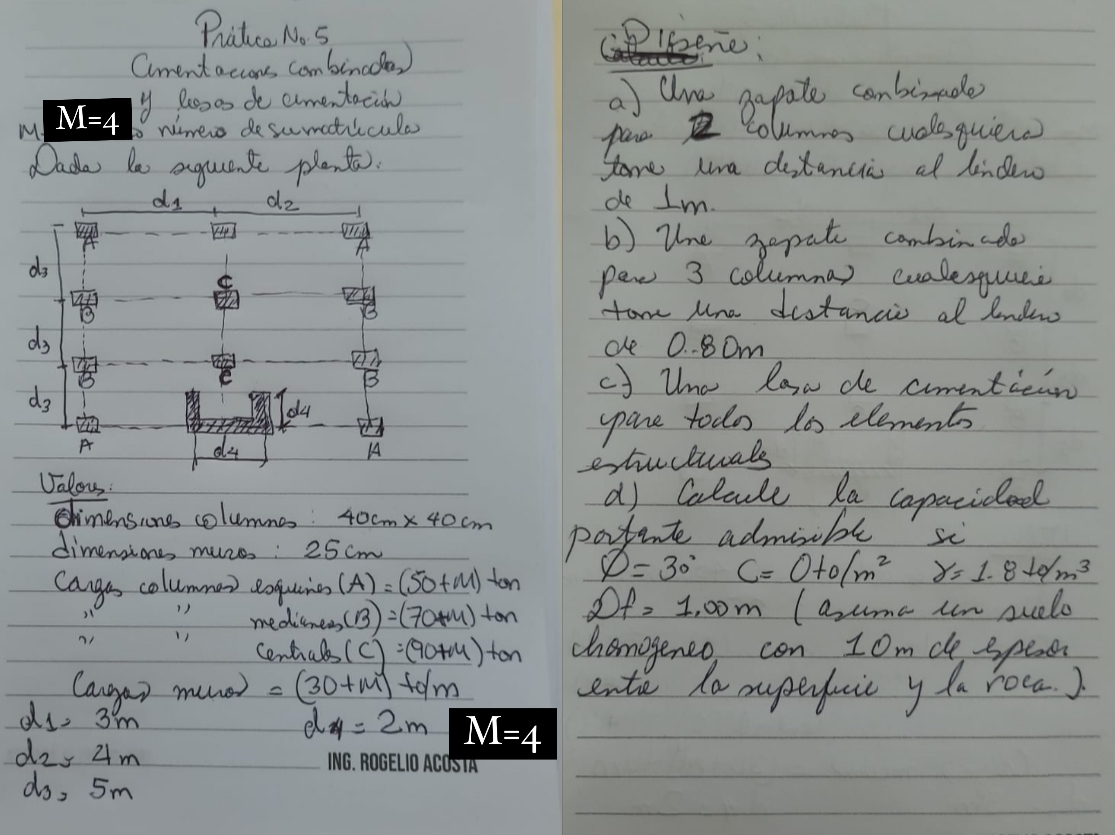 Prática No. 5
Cimentaciones combinadas
y losas de cimentación
M=4
número de su matrícula
Dada la siguiente planta:
d1 d2
A A
d3
C
B B
d3
C
B B
d3
d4
A A
d4
Valores:
dimensiones columnas: 40cm x 40cm
dimensiones muros: 25cm
Cargas columnas esquinas (A) = (50+M) ton
" " medianeras (B) = (70+M) ton
" " Centrales (C) = (90+M) ton
Cargas muros = (30+M) to/m
d1= 3m d4 = 2m
M=4
d2= 4m
ING. ROGELIO ACOSTA
d3= 5m
Diseñe:
a) Una zapata combinada
para 2 columnas cualesquiera
tome una distancia al lindero
de 1m.
b) Una zapata combinada
para 3 columnas cualesquiera
tome una distancia al lindero
de 0.80m
c) Una losa de cimentación
para todos los elementos
estructurales
d) Calcule la capacidad
portante admisible si
Ø= 30° C= 0to/m² γ= 1.8 to/m³
Df= 1.00m (asuma un suelo
homogeneo con 10m de espesor
entre la superficie y la roca.).